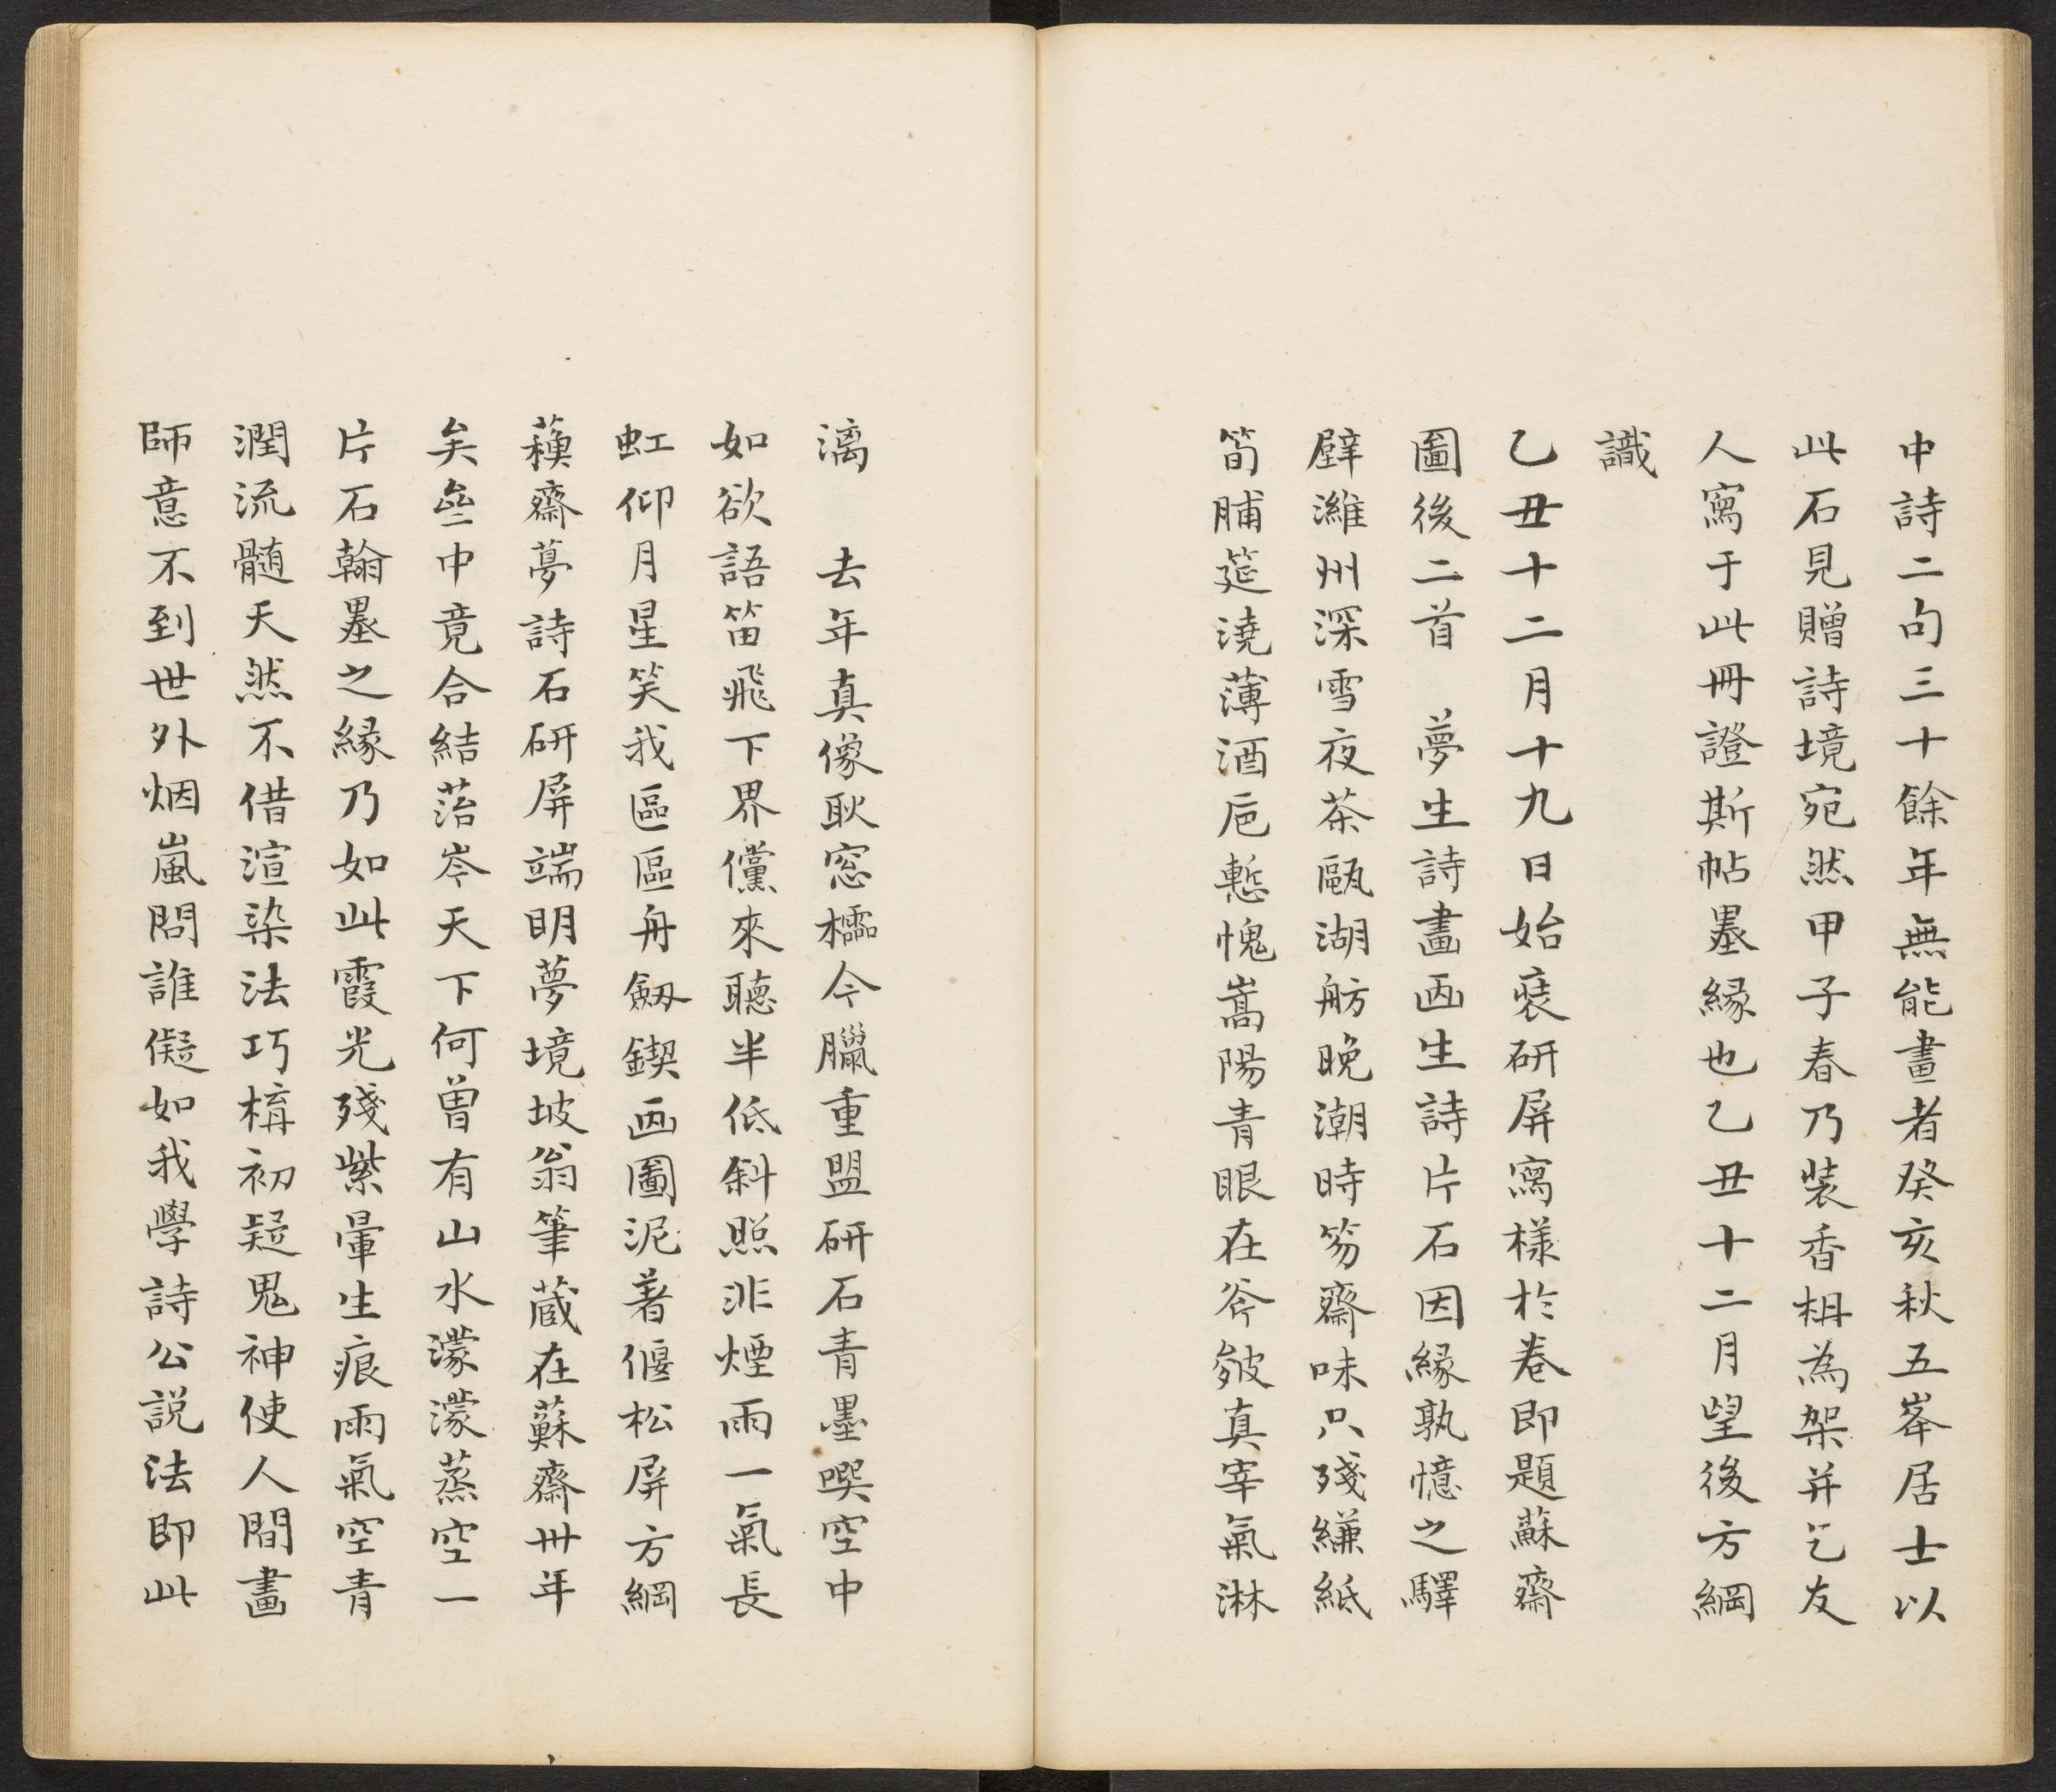 中詩二句三十餘年無能畫者癸亥秋五峯居士以
此石見贈詩境宛然甲子春乃裝香枏為架并乞友
人寫于此冊證斯帖墨緣也乙丑十二月望後方綱
識
乙丑十二月十九日始裝研屏寫樣於卷即題蘇齋
圖後二首　夢生詩畫画生詩片石因緣孰憶之驛
壁濰州深雪夜茶甌湖舫晚潮時笏齋味只殘縑紙
筍脯筵澆薄酒巵慙愧嵩陽青眼在斧皴真宰氣淋
漓　去年真像耿窓櫺今臘重盟研石青墨喫空中
如欲語笛飛下界儻來聽半低斜照非煙雨一氣長
虹仰月星笑我區區舟劔鍥画圖泥著偃松屏方綱
蘓齋夢詩石研屏端明夢境坡翁筆蔵在蘇齋卅年
矣壺中竟合結菭岑天下何曽有山水濛濛蒸空一
片石翰墨之緣乃如此霞光殘紫暈生痕雨氣空青
潤流髄天然不借渲染法巧構初疑鬼神使人間畫
師意不到世外烟嵐問誰儗如我學詩公說法即此